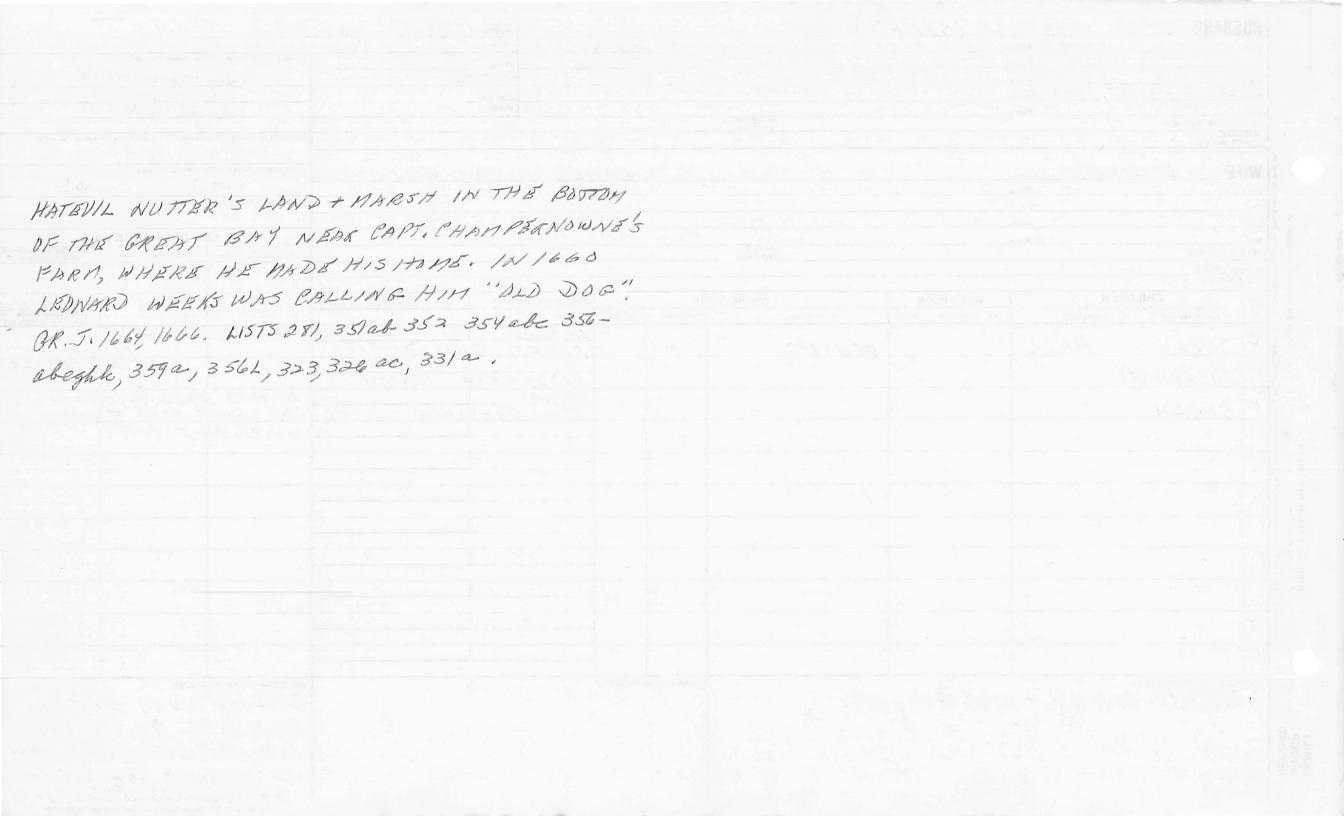 HATEVIL NUTTER'S LAND + MARSH IN THE BOTTOM
OF THE GREAT BAY NEAR CAPT. CHAMPERNOWNE'S
FARM, WHERE HE MADE HIS HOME. IN 1660
LEONARD WEEKS WAS CALLING HIM "OLD DOG".
GR. J. 1664, 1666. LISTS 281, 351ab 352 354abc 356-
abeghk, 359a, 356L, 323, 326 ac, 331a.
HUSBAND
WIFE
CHILDREN